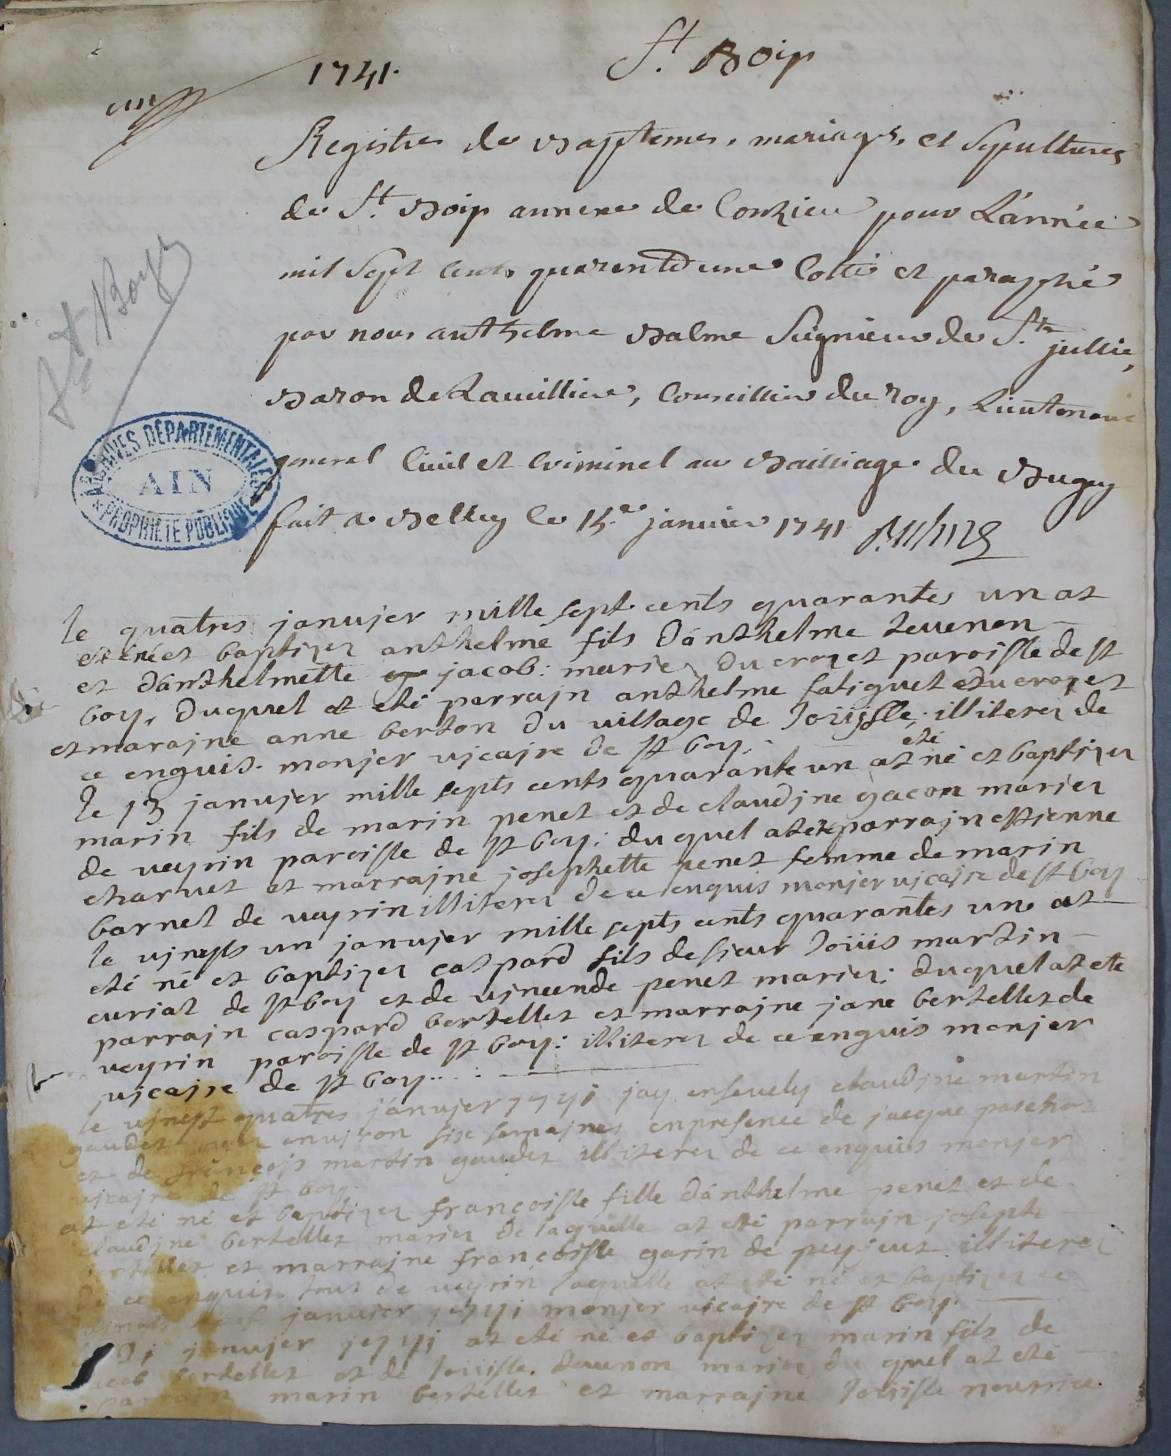 1741. St. Boip
un
Registre de Baptemes, mariages, et Sepultures
de St. Boip annexe de Conzieu pour L'année
mil Sept cents quarente une Cotté et paraphé
par nous anthelme Balme Seigneur de Ste jullie,
Baron de Lauilliere, Conseiller du roy, Lieutenant
general Ciuil et Criminel au Bailliage du Bugey
fait a Belley le 15.e janvier 1741
St Boys
ARCHIVES DÉPARTEMENTALES
AIN
PROPRIÉTÉ PUBLIQUE
le quatres janvjer mille sept cents quarantes un at
eté né et baptizez anthelme fils d'anthelme teuenon
et d'anthelmette jacob: mariez du crozet paroisse de st
boy, duquel at eté parrajn anthelme faliguet du crozet
et marajne anne berton du village de Loüysse. illiterez de
ce enquis. monjer vjcajre de st boy.
le 13 janvjer mille septs cents quarante un at eté né et baptizez
marin fils de marin penet et de claudjne gacon mariez
de veyrin paroisse de st boy: duquel at eté parrajn estjenne
charvet et marrajne josephette penet femme de marin
barnet de veyrin illiterez de ce enquis monjer vjcajre de st boy
le vjngts un janvjer mille septs cents quarantes un at
eté né et baptizez caspard fils de sjeur Loüis martin
curiat de st boy et de vjncende penet mariez; duquel at eté
parrajn caspard bertellet et marrajne jane bertellet de
veyrin paroisse de st boy: illiterez de ce enquis monjer
vjcajre de st boy.
le vjngt quatres janvjer jay ensevely claudjne martin
gaudet envjron six semajnes en presence de jacque
et de françojs martin gaudet illiterez de ce enquis monjer
vjcajre de st boy.
at eté né et baptizez françoisse fille d'anthelme penet et de
claudjne bertellet mariez de laquelle at eté parrajn josepte
bertellet et marrajne françoisse garin de peyzieux illiterez
de ce enquis tous de veyrin laquelle at eté né et baptizez ce
janvjer monjer vjcajre de st boy.
janvjer at eté né et baptizez marin fils de
jacob bertellet et de Loüisse teuenon mariez du quel at eté
parrajn marin bertellet et marrajne Loüisse